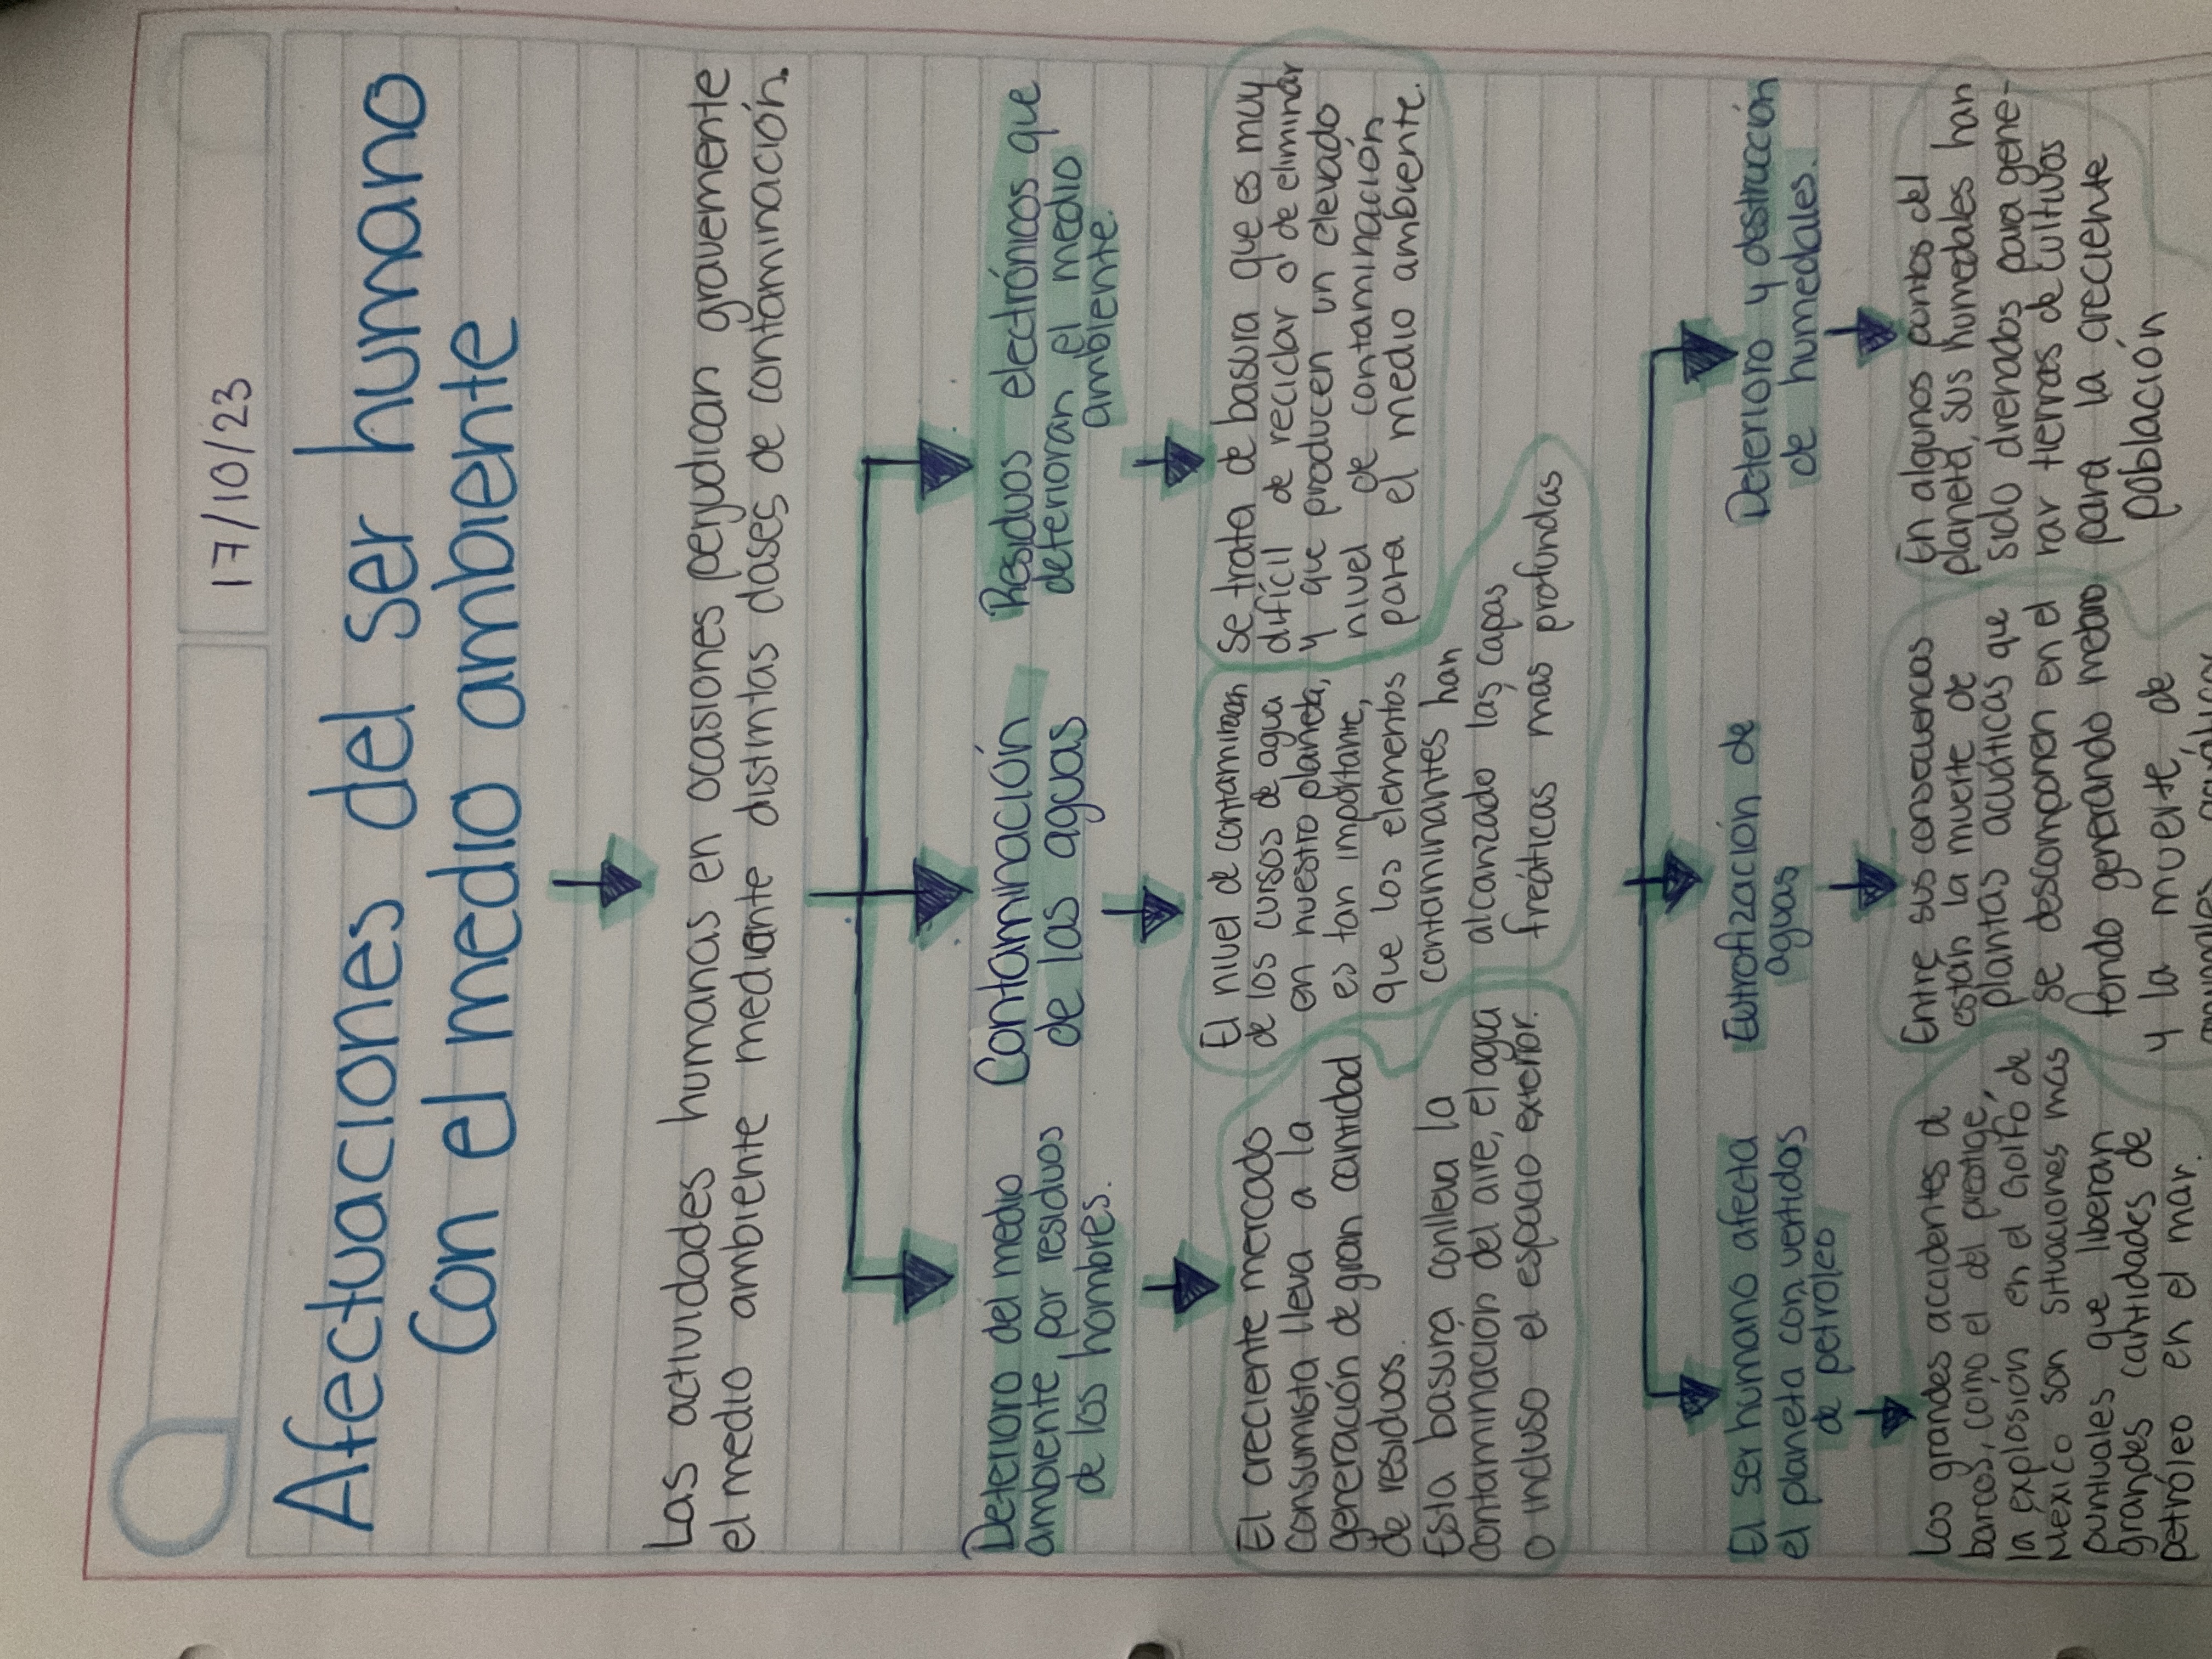 17/10/23
Afectuaciones del ser humano
Con el medio ambiente
Las actividades humanas en ocasiones perjudican gravemente
el medio ambiente mediante distintas clases de contaminación.
Deterioro del medio
ambiente por residuos
de los hombres.
Contaminación
de las aguas
Residuos electrónicos que
deterioran el medio
ambiente.
El creciente mercado
consumista lleva a la
generación de gran cantidad
de residuos.
Esta basura conlleva la
contaminación del aire, el agua
o incluso el espacio exterior.
El nivel de contaminacion
de los cursos de agua
en nuestro planeta,
es tan importante,
que los elementos
contaminantes han
alcanzado las capas
freáticas mas profundas
Se trata de basura que es muy
difícil de reciclar o de eliminar
y que producen un elevado
nivel de contaminación
para el medio ambiente.
El ser humano afecta
el planeta con vertidas
de petroleo
Eutrofización de
aguas
Deterioro y destrucción
de humedales.
Los grandes accidentes d
barcos, como el del prestige,
la explosión en el Golfo de
Mexico son situaciones mas
puntuales que liberan
grandes cantidades de
petróleo en el mar.
Entre sus consecuencas
están la muerte de
plantas acuáticas que
se descomponen en el
fondo generando metano
y la muerte de
animales
En algunos puntos del
planeta, sus humedales han
sido drenados para gene-
rar tierras de cultivos
para la creciente
población